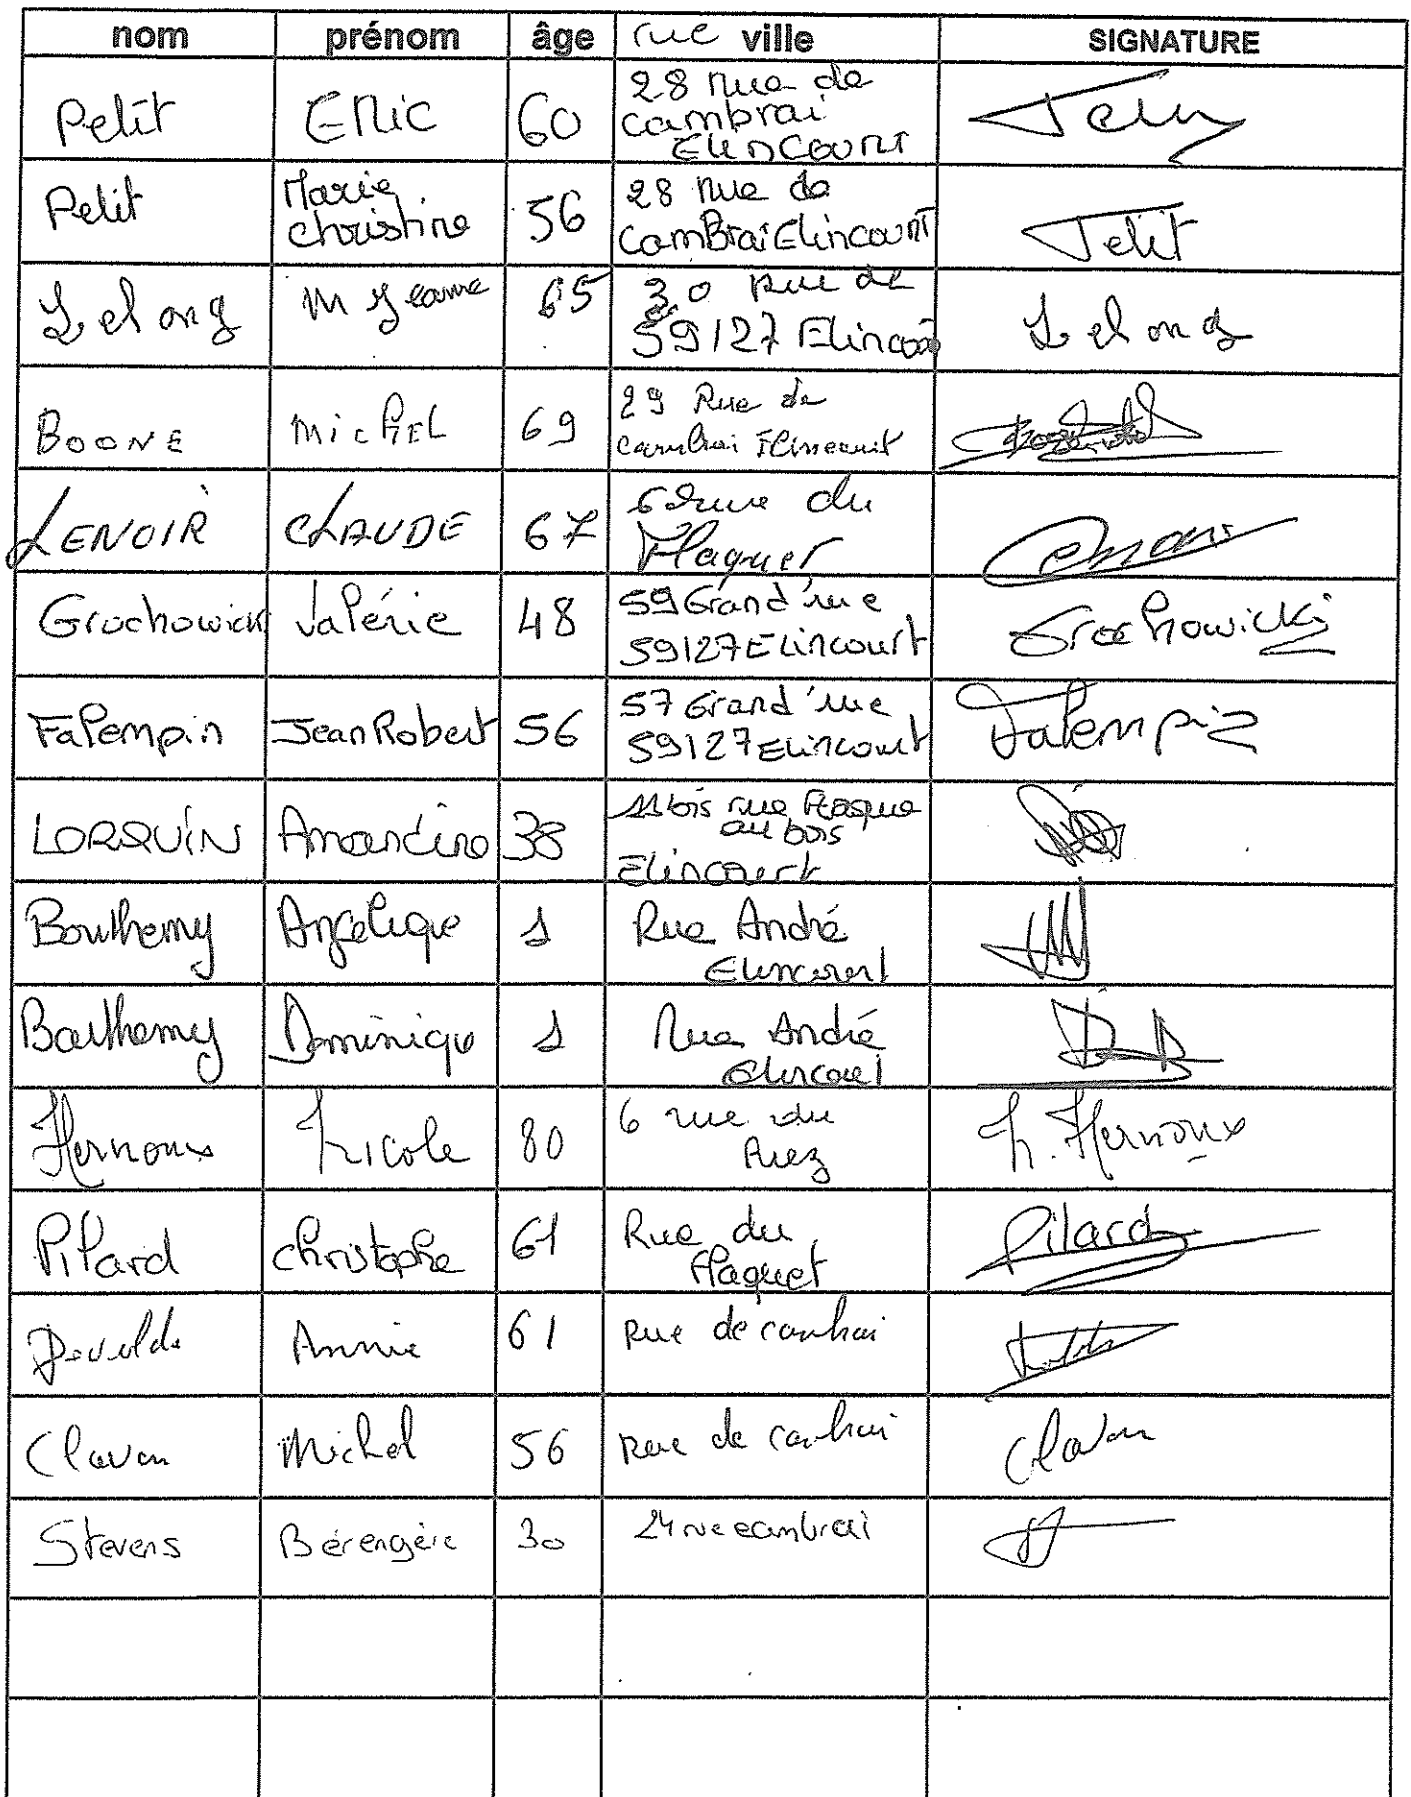 nom prénom âge rue ville SIGNATURE
Petit Eric 60 28 rue de
Cambrai
Elincourt
Petit Marie 56 28 rue de
Christine CamBrai Elincourt Petit
Lelong M Jeanne 65 30 rue de
59127 Elincourt Lelong
BOONE MicHEL 69 29 Rue de
Cambrai Elincourt
LENOIR CLAUDE 67 6 rue du
Flaquet Lenoir
Grochowicki Valérie 48 59 Grand'rue
59127 Elincourt Grochowicki
Falempin Jean Robert 56 57 Grand'rue
59127 Elincourt Falempin
LORQUIN Amandine 38 11 bis rue
au bois
Elincourt
Bouthemy Angélique 1 Rue André
Elincourt
Bouthemy Dominique 1 Rue André
Elincourt
Hernoux Nicole 80 6 rue du
Riez N. Hernoux
Pilard Christophe 61 Rue du
Flaquet Pilard
Annie 61 Rue de Cambrai
Clavon Michel 56 Rue de Cambrai Clavon
Stevens Bérengère 30 24 rue cambrai